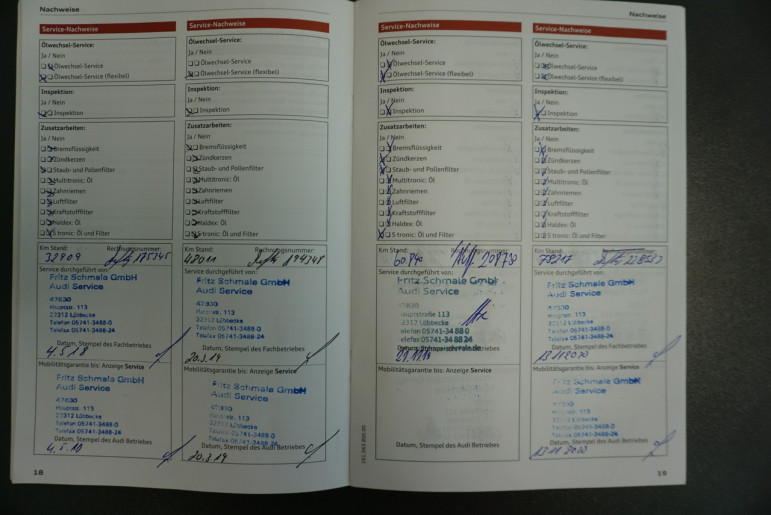 Nachweise
Service-Nachweise
Ölwechsel-Service:
Ja / Nein
Ölwechsel-Service
Ölwechsel-Service (flexibel)
Inspektion:
Ja / Nein
Inspektion
Zusatzarbeiten:
Ja / Nein
Bremsflüssigkeit
Zündkerzen
Staub- und Pollenfilter
Multitronic: Öl
Zahnriemen
Luftfilter
Kraftstofffilter
Haldex: Öl
S tronic: Öl und Filter
Km Stand: Rechnungsnummer:
32909 175345
Service durchgeführt von:
Fritz Schmale GmbH
Audi Service
47830
Hauptstr. 113
32312 Lübbecke
Telefon 05741-3488-0
Telefax 05741-3488-24
Datum, Stempel des Fachbetriebes
4.5.18
Mobilitätsgarantie bis: Anzeige Service
Fritz Schmale GmbH
Audi Service
47830
Hauptstr. 113
32312 Lübbecke
Telefon 05741-3488-0
Telefax 05741-3488-24
Datum, Stempel des Audi Betriebes
18
Service-Nachweise
Ölwechsel-Service:
Ja / Nein
Ölwechsel-Service
Ölwechsel-Service (flexibel)
Inspektion:
Ja / Nein
Inspektion
Zusatzarbeiten:
Ja / Nein
Bremsflüssigkeit
Zündkerzen
Staub- und Pollenfilter
Multitronic: Öl
Zahnriemen
Luftfilter
Kraftstofffilter
Haldex: Öl
S tronic: Öl und Filter
Km Stand: Rechnungsnummer:
194348
Service durchgeführt von:
Fritz Schmale GmbH
Audi Service
47830
Hauptstr. 113
32312 Lübbecke
Telefon 05741-3488-0
Telefax 05741-3488-24
Datum, Stempel des Fachbetriebes
20.3.19
Mobilitätsgarantie bis: Anzeige Service
Fritz Schmale GmbH
Audi Service
47830
Hauptstr. 113
32312 Lübbecke
Telefon 05741-3488-0
Telefax 05741-3488-24
Datum, Stempel des Audi Betriebes
20.3.19
Nachweise
Service-Nachweise
Ölwechsel-Service:
Ja / Nein
Ölwechsel-Service
Ölwechsel-Service (flexibel)
Inspektion:
Ja / Nein
Inspektion
Zusatzarbeiten:
Ja / Nein
Bremsflüssigkeit
Zündkerzen
Staub- und Pollenfilter
Multitronic: Öl
Zahnriemen
Luftfilter
Kraftstofffilter
Haldex: Öl
S tronic: Öl und Filter
Km Stand: Rechnungsnummer:
60840
Service durchgeführt von:
Fritz Schmale GmbH
Audi Service
Hauptstraße 113
2312 Lübbecke
elefon 05741-34 88 0
elefax 05741-34 88 24
Datum, Stempel des Fachbetriebes
Mobilitätsgarantie bis: Anzeige Service
Datum, Stempel des Audi Betriebes
Service-Nachweise
Ölwechsel-Service:
Ja / Nein
Ölwechsel-Service
Ölwechsel-Service (flexibel)
Inspektion:
Ja / Nein
Inspektion
Zusatzarbeiten:
Ja / Nein
Bremsflüssigkeit
Zündkerzen
Staub- und Pollenfilter
Multitronic: Öl
Zahnriemen
Luftfilter
Kraftstofffilter
Haldex: Öl
S tronic: Öl und Filter
Km Stand: Rechnungsnummer:
Service durchgeführt von:
Fritz Schmale GmbH
Audi Service
47830
Hauptstr. 113
32312 Lübbecke
Telefon 05741-3488-0
Telefax 05741-3488-24
Datum, Stempel des Fachbetriebes
Mobilitätsgarantie bis: Anzeige Service
Fritz Schmale GmbH
Audi Service
47830
Hauptstr. 113
32312 Lübbecke
Telefon 05741-3488-0
Telefax 05741-3488-24
Datum, Stempel des Audi Betriebes
19